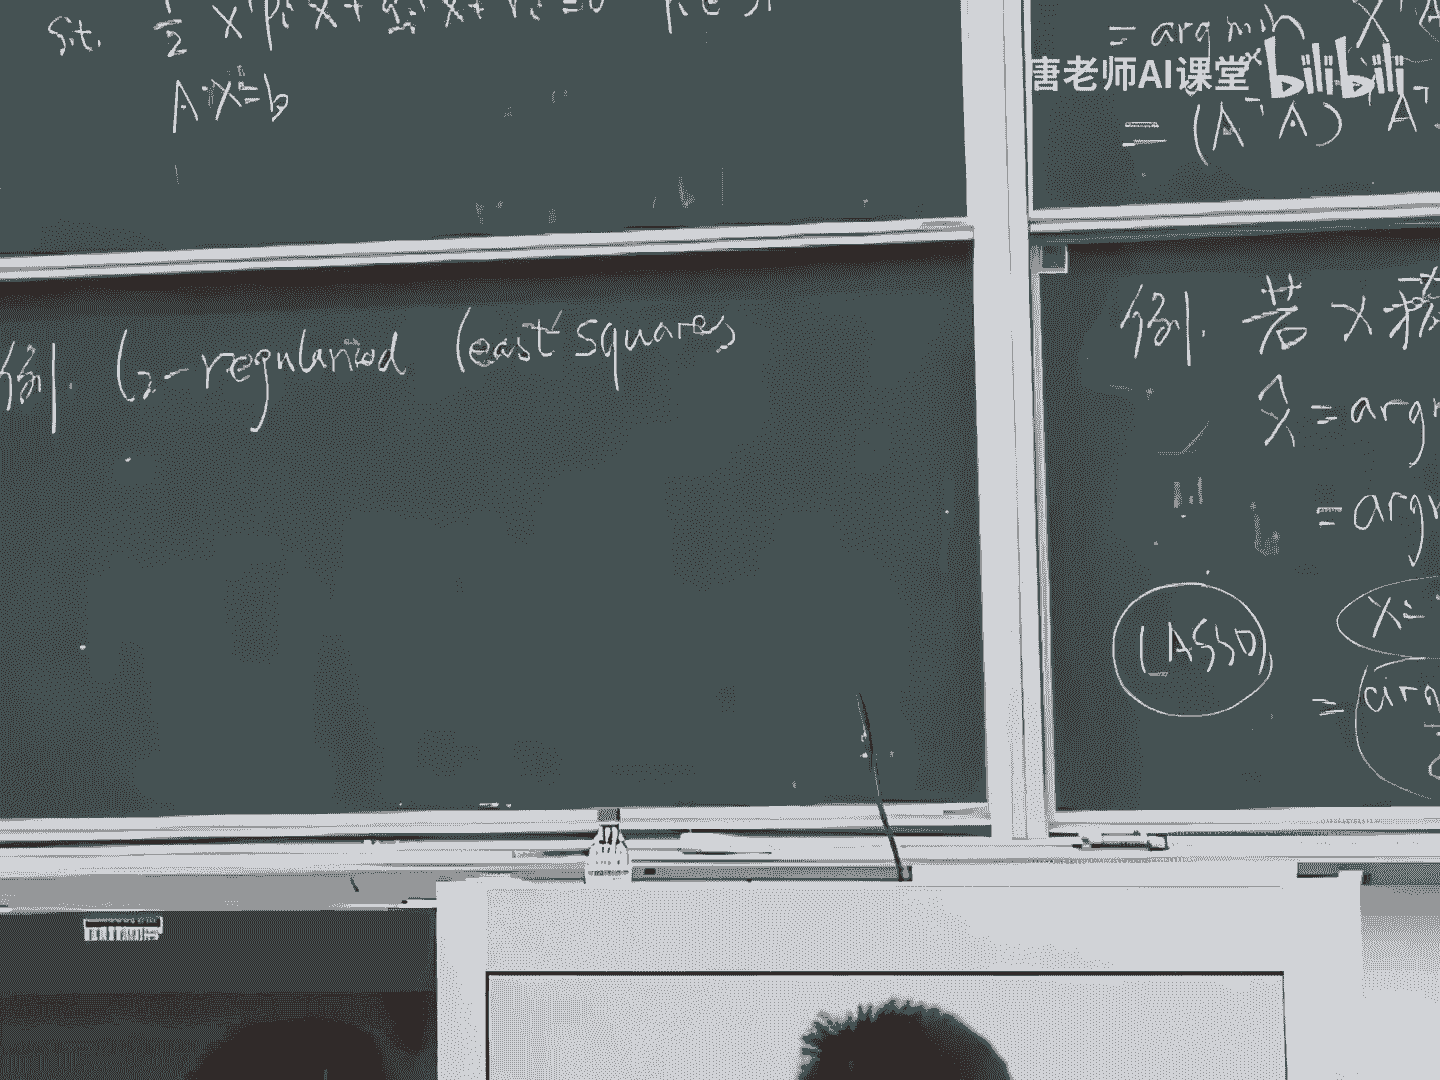 s.t. 1/2 x^T P_i x + q_i^T x + r_i ≤ 0
A·x = b
例. l₂-regularized least squares
= arg min
唐老师AI课堂 bilibili
= (A^T A)
例. 若 x 稀
x̂ = arg
= arg
LASSO
x =
= arg